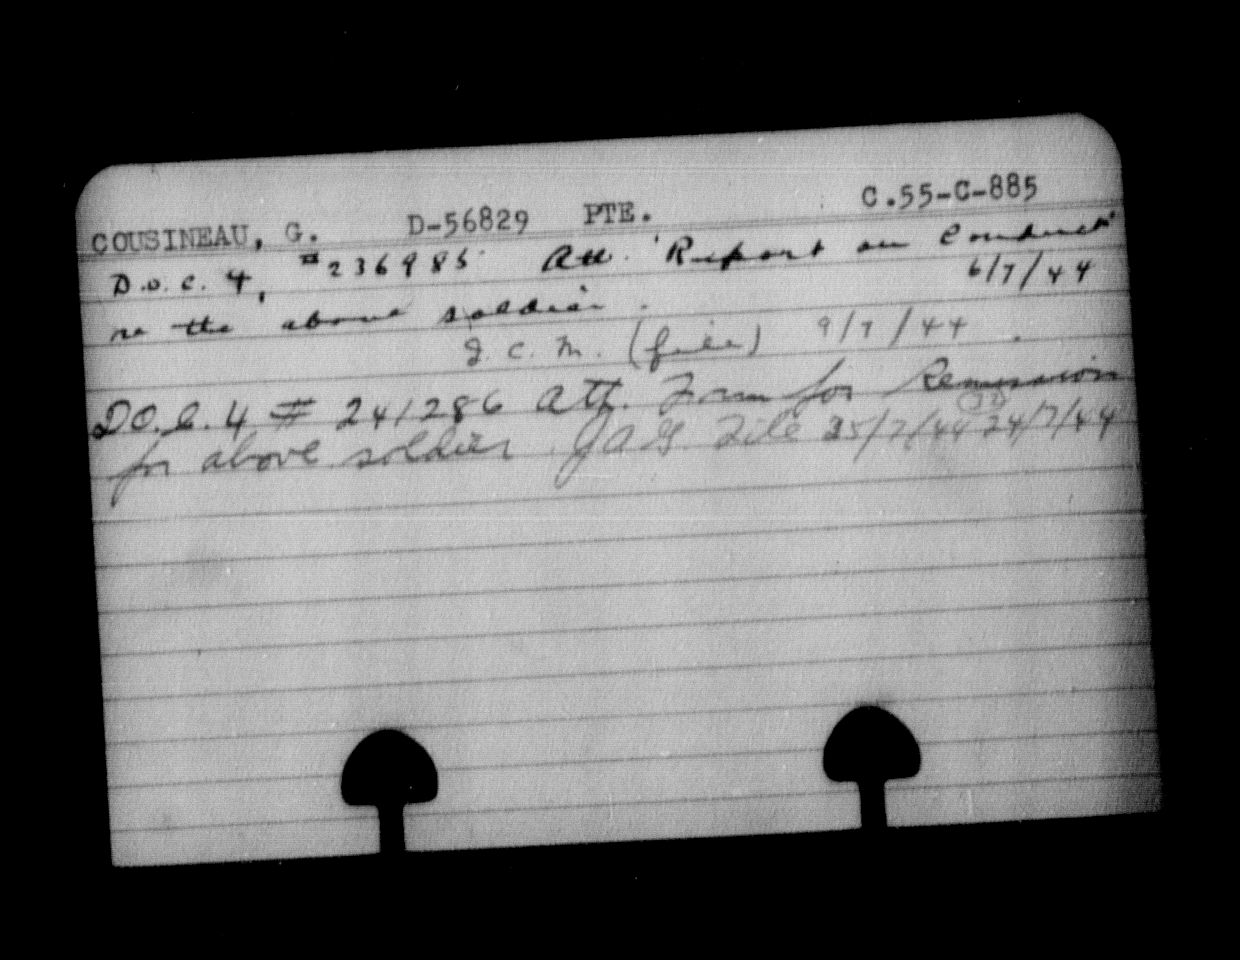 COUSINEAU, G. D-56829 PTE. C.55-C-885
D.O.C. 4, #236985 Att. "Report on Conduct"
re the above soldier. 6/7/44
J. C. M. (file) 9/7/44.
D.O.C. 4 # 241286 Att. Form for Remission
for above soldier JAG File 25/7/44 24/7/44